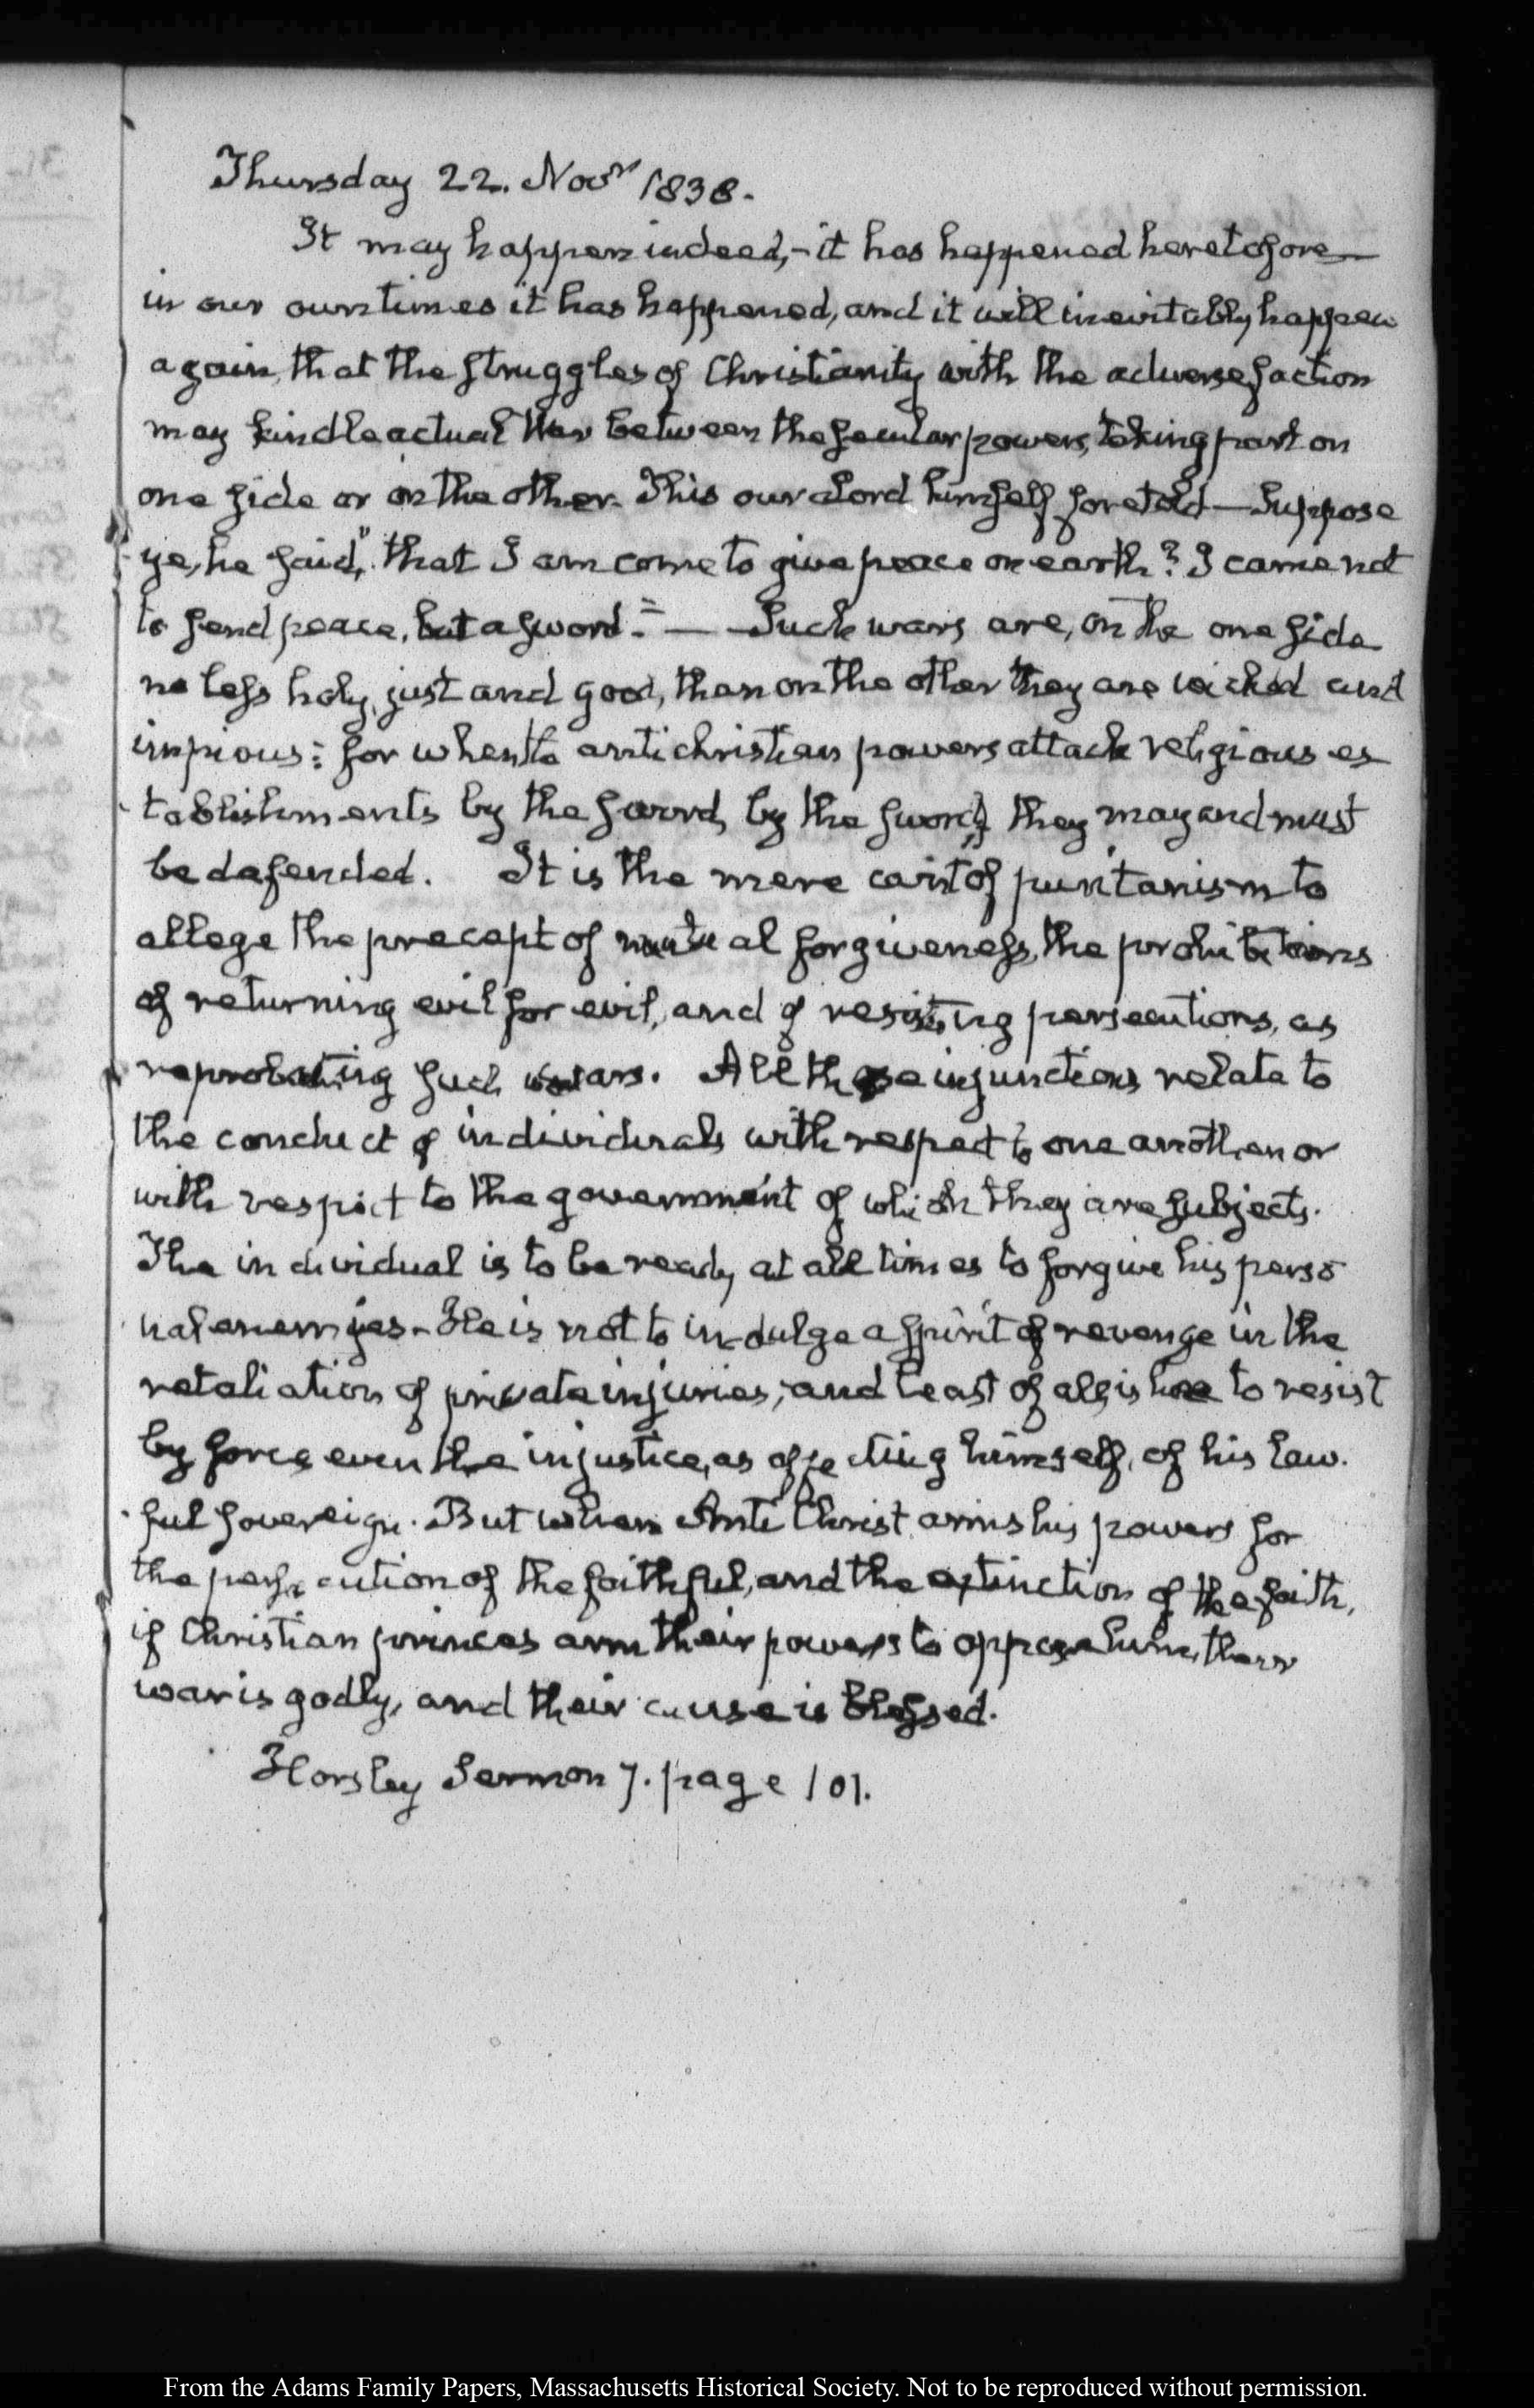 Thursday 22. Novr 1838.
It may happen indeed,- it has happened heretofore—
in our own times it has happened, and it will inevitably happen
again, that the struggles of Christianity with the adverse faction
may kindle actual War between the secular powers, taking part on
one side or on the other. This our Lord himself foretold—Suppose
ye, he said, "that I am come to give peace on earth? I came not
to send peace, but a sword."— —Such wars are, on the one side
no less holy, just and good, than on the other they are wicked and
impious: for when the antichristian powers attack religious es
tablishments by the sword, by the sword, they may and must
be defended. It is the mere cant of puritanism to
allege the precept of mutual forgiveness, the prohibitions
of returning evil for evil, and of resisting persecutions, as
reprobating such wars. All these injunctions relate to
the conduct of individuals with respect to one another or
with respect to the government of which they are subjects.
The individual is to be ready at all times to forgive his perso
nal enemies- He is not to indulge a spirit of revenge in the
retaliation of private injuries; and least of all, is he to resist
by force even the injustice, as affecting himself, of his law.
ful Sovereign. But when Anti Christ arms his powers for
the persecution of the faithful, and the extinction of the faith,
if Christian princes arm their powers to oppose him, their
war is godly, and their cause is blessed.
Horsley Sermon 7. page 101.
From the Adams Family Papers, Massachusetts Historical Society. Not to be reproduced without permission.